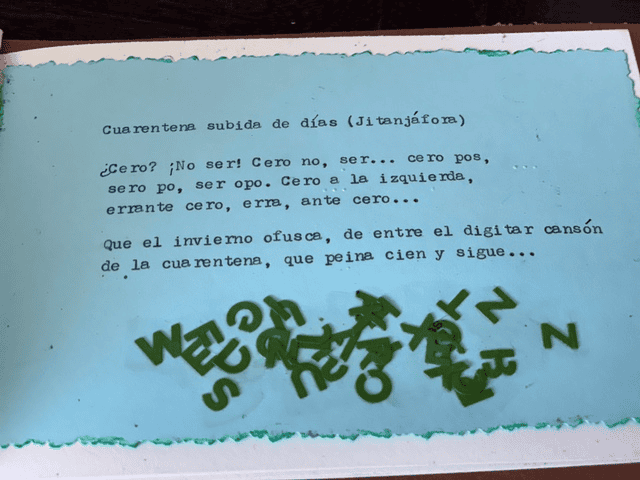 Cuarentena subida de días (Jitanjáfora)
¿Cero? ¡No ser! Cero no, ser... cero pos,
sero po, ser opo. Cero a la izquierda,
errante cero, erra, ante cero...
Que el invierno ofusca, de entre el digitar cansón
de la cuarentena, que peina cien y sigue...